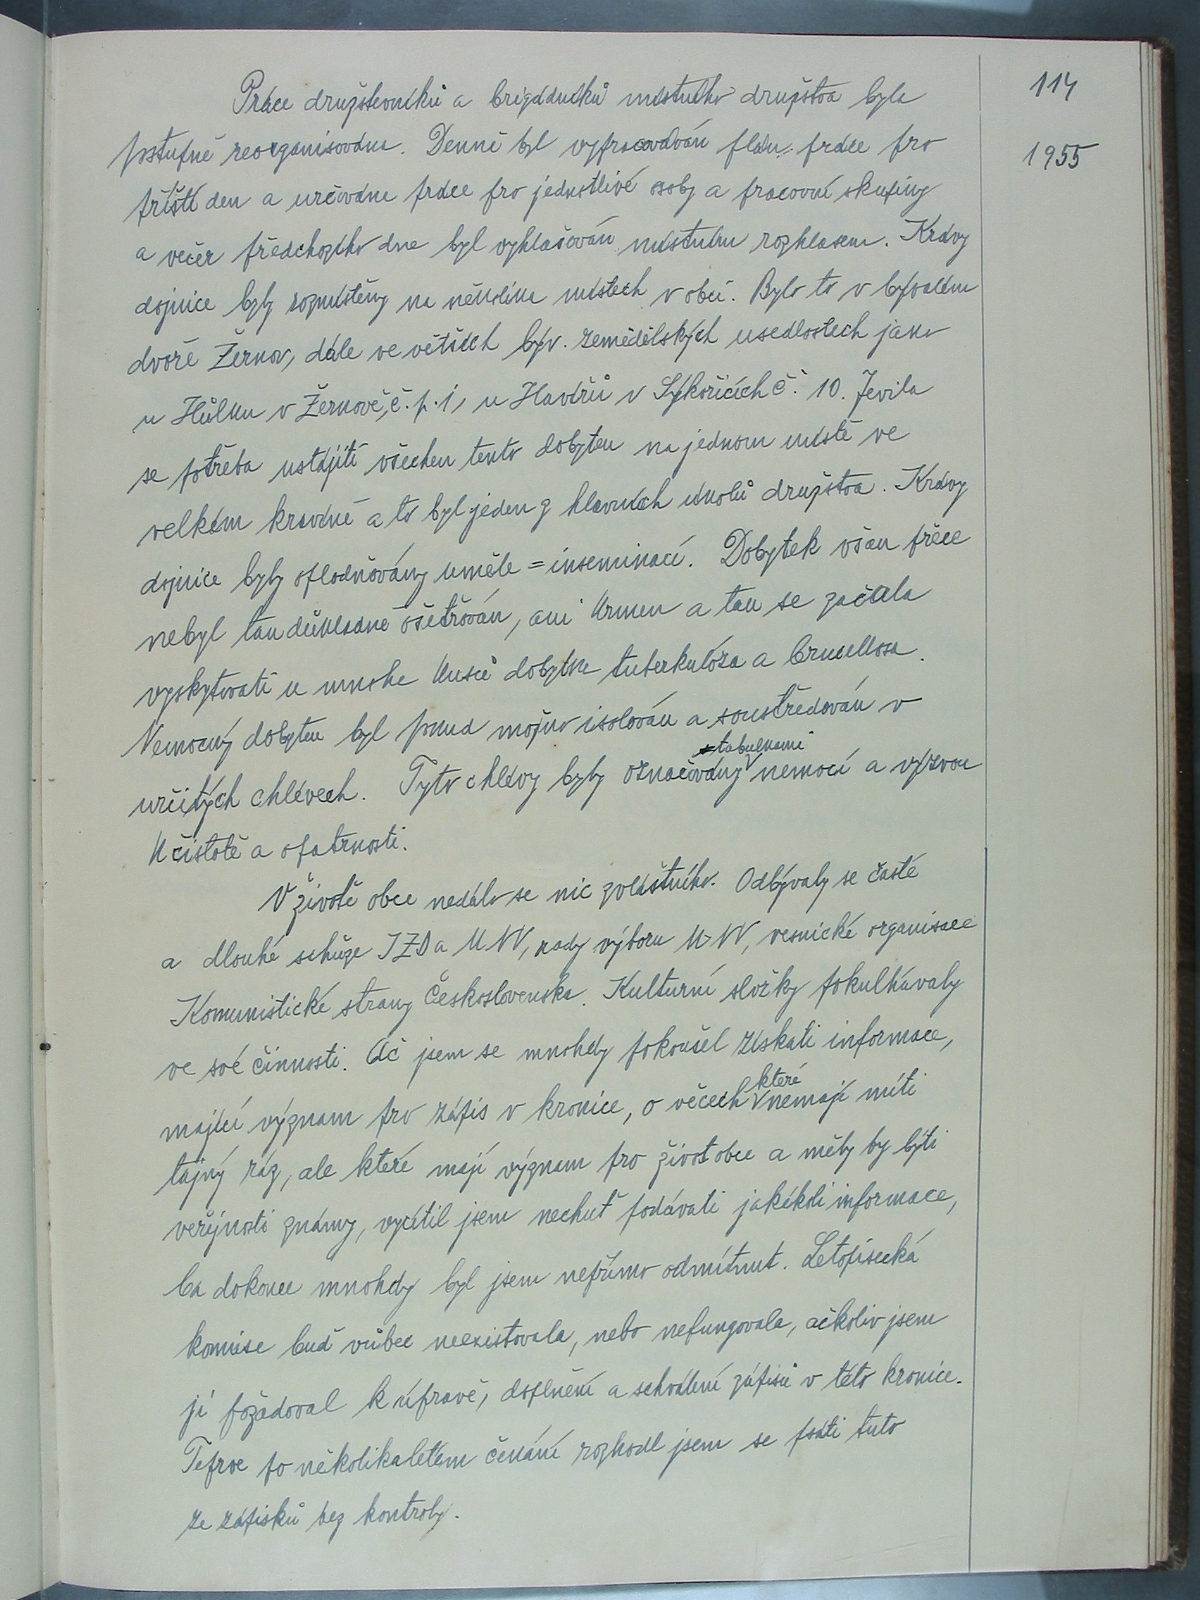 114
1955
Práce družstevníků a brigádníků místního družstva byla
postupně reorganisována. Denně byl vypracováván plán práce pro
příští den a určována práce pro jednotlivé osoby a pracovní skupiny
a večer předchozího dne byl vyhlašován místním rozhlasem. Krávy
dojnice byly rozmístěny na několika místech v obci. Bylo to v bývalém
dvoře Žernov, dále ve větších býv. zemědělských usedlostech jako
u Hůlků v Žernově, č. p. 1, u Havířů v Sýkořicích č. 10. Jevila
se potřeba ustájiti všechen tento dobytek na jednom místě ve
velkém kravíně a to byl jeden z hlavních úkolů družstva. Krávy
dojnice byly oplodňovány uměle = inseminací. Dobytek však přece
nebyl tak důkladně ošetřován, ani krmen a tak se začala
vyskytovati u mnoha kusů dobytka tuberkulóza a brucellosa.
Nemocný dobytek byl pokud možno isolován a soustřeďován v
určitých chlévech. Tyto chlévy byly označovány tabulkami nemocí a výzvou
k čistotě a opatrnosti.
V životě obce nedálo se nic zvláštního. Odbývaly se časté
a dlouhé schůze JZD a MNV, rady výboru MNV, vesnické organisace
Komunistické strany Československa. Kulturní složky pokulhávaly
ve své činnosti. Ač jsem se mnohdy pokoušel získati informace,
mající význam pro zápis v kronice, o věcech které nemají míti
tajný ráz, ale které mají význam pro život obce a měly by býti
veřejnosti známy, vycítil jsem nechuť podávati jakékoli informace,
ba dokonce mnohdy byl jsem nepřímo odmítnut. Letopisecká
komise buď vůbec neexistovala, nebo nefungovala, ačkoliv jsem
ji požádoval k úpravě, doplnění a schválení zápisů v této kronice.
Teprve po několikaletém čekání rozhodl jsem se psáti tuto
ze zápisků bez kontroly.